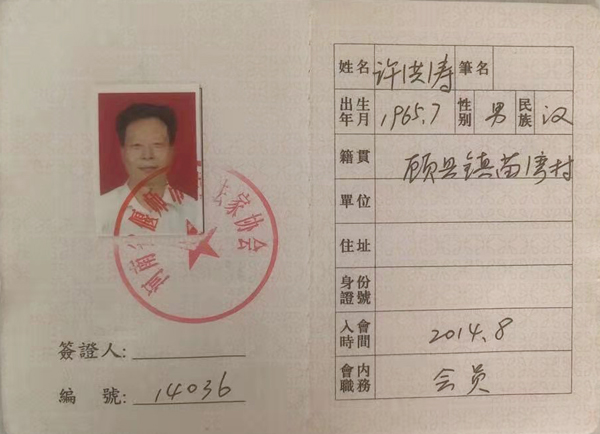 河南省偃师 法家协会
簽證人:
編 號: 14036
姓名 许洪涛 筆名
出生年月 1965.7 性别 男 民族 汉
籍貫 顾县镇苗湾村
單位
住址
身份證號
入會時間 2014.8
會内職務 会员